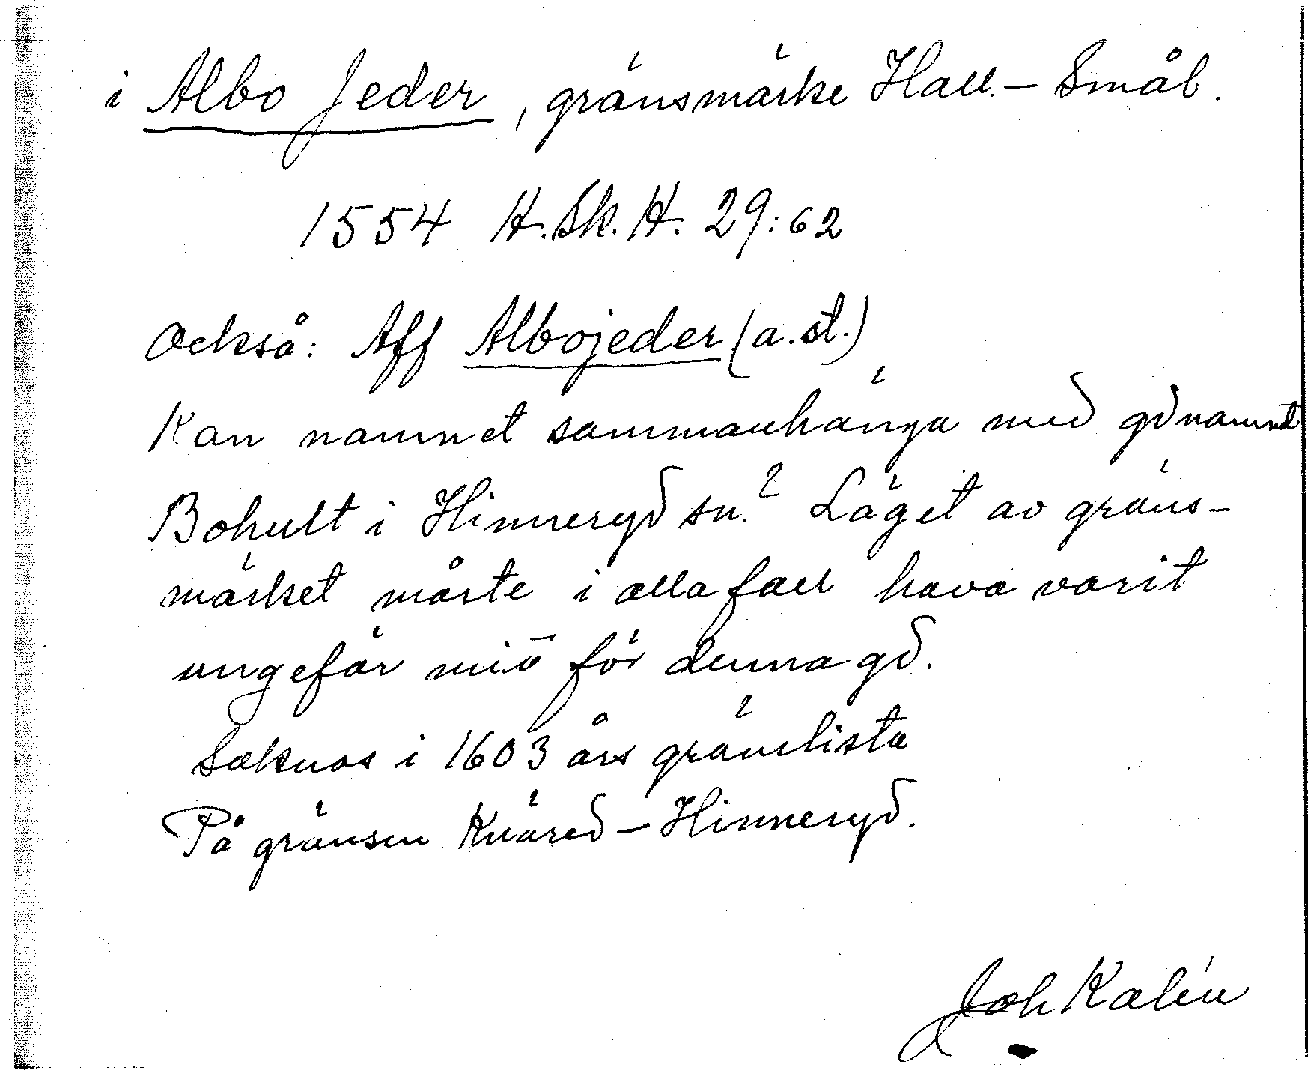 i Albo Jeder, gränsmärke Hall. - Smål.
1554 H.Sk.H. 29:62
Också: Aff Albojeder (a.st.)
Kan namnet sammanhänga med gdnamnet
Bohult i Hinneryd sn.? Läget av gräns-
märket måste i alla fall hava varit
ungefär mitt för denna gd.
Saknas i 1603 års gränslista
På gränsen Knäred - Hinneryd.
Joh Kalén